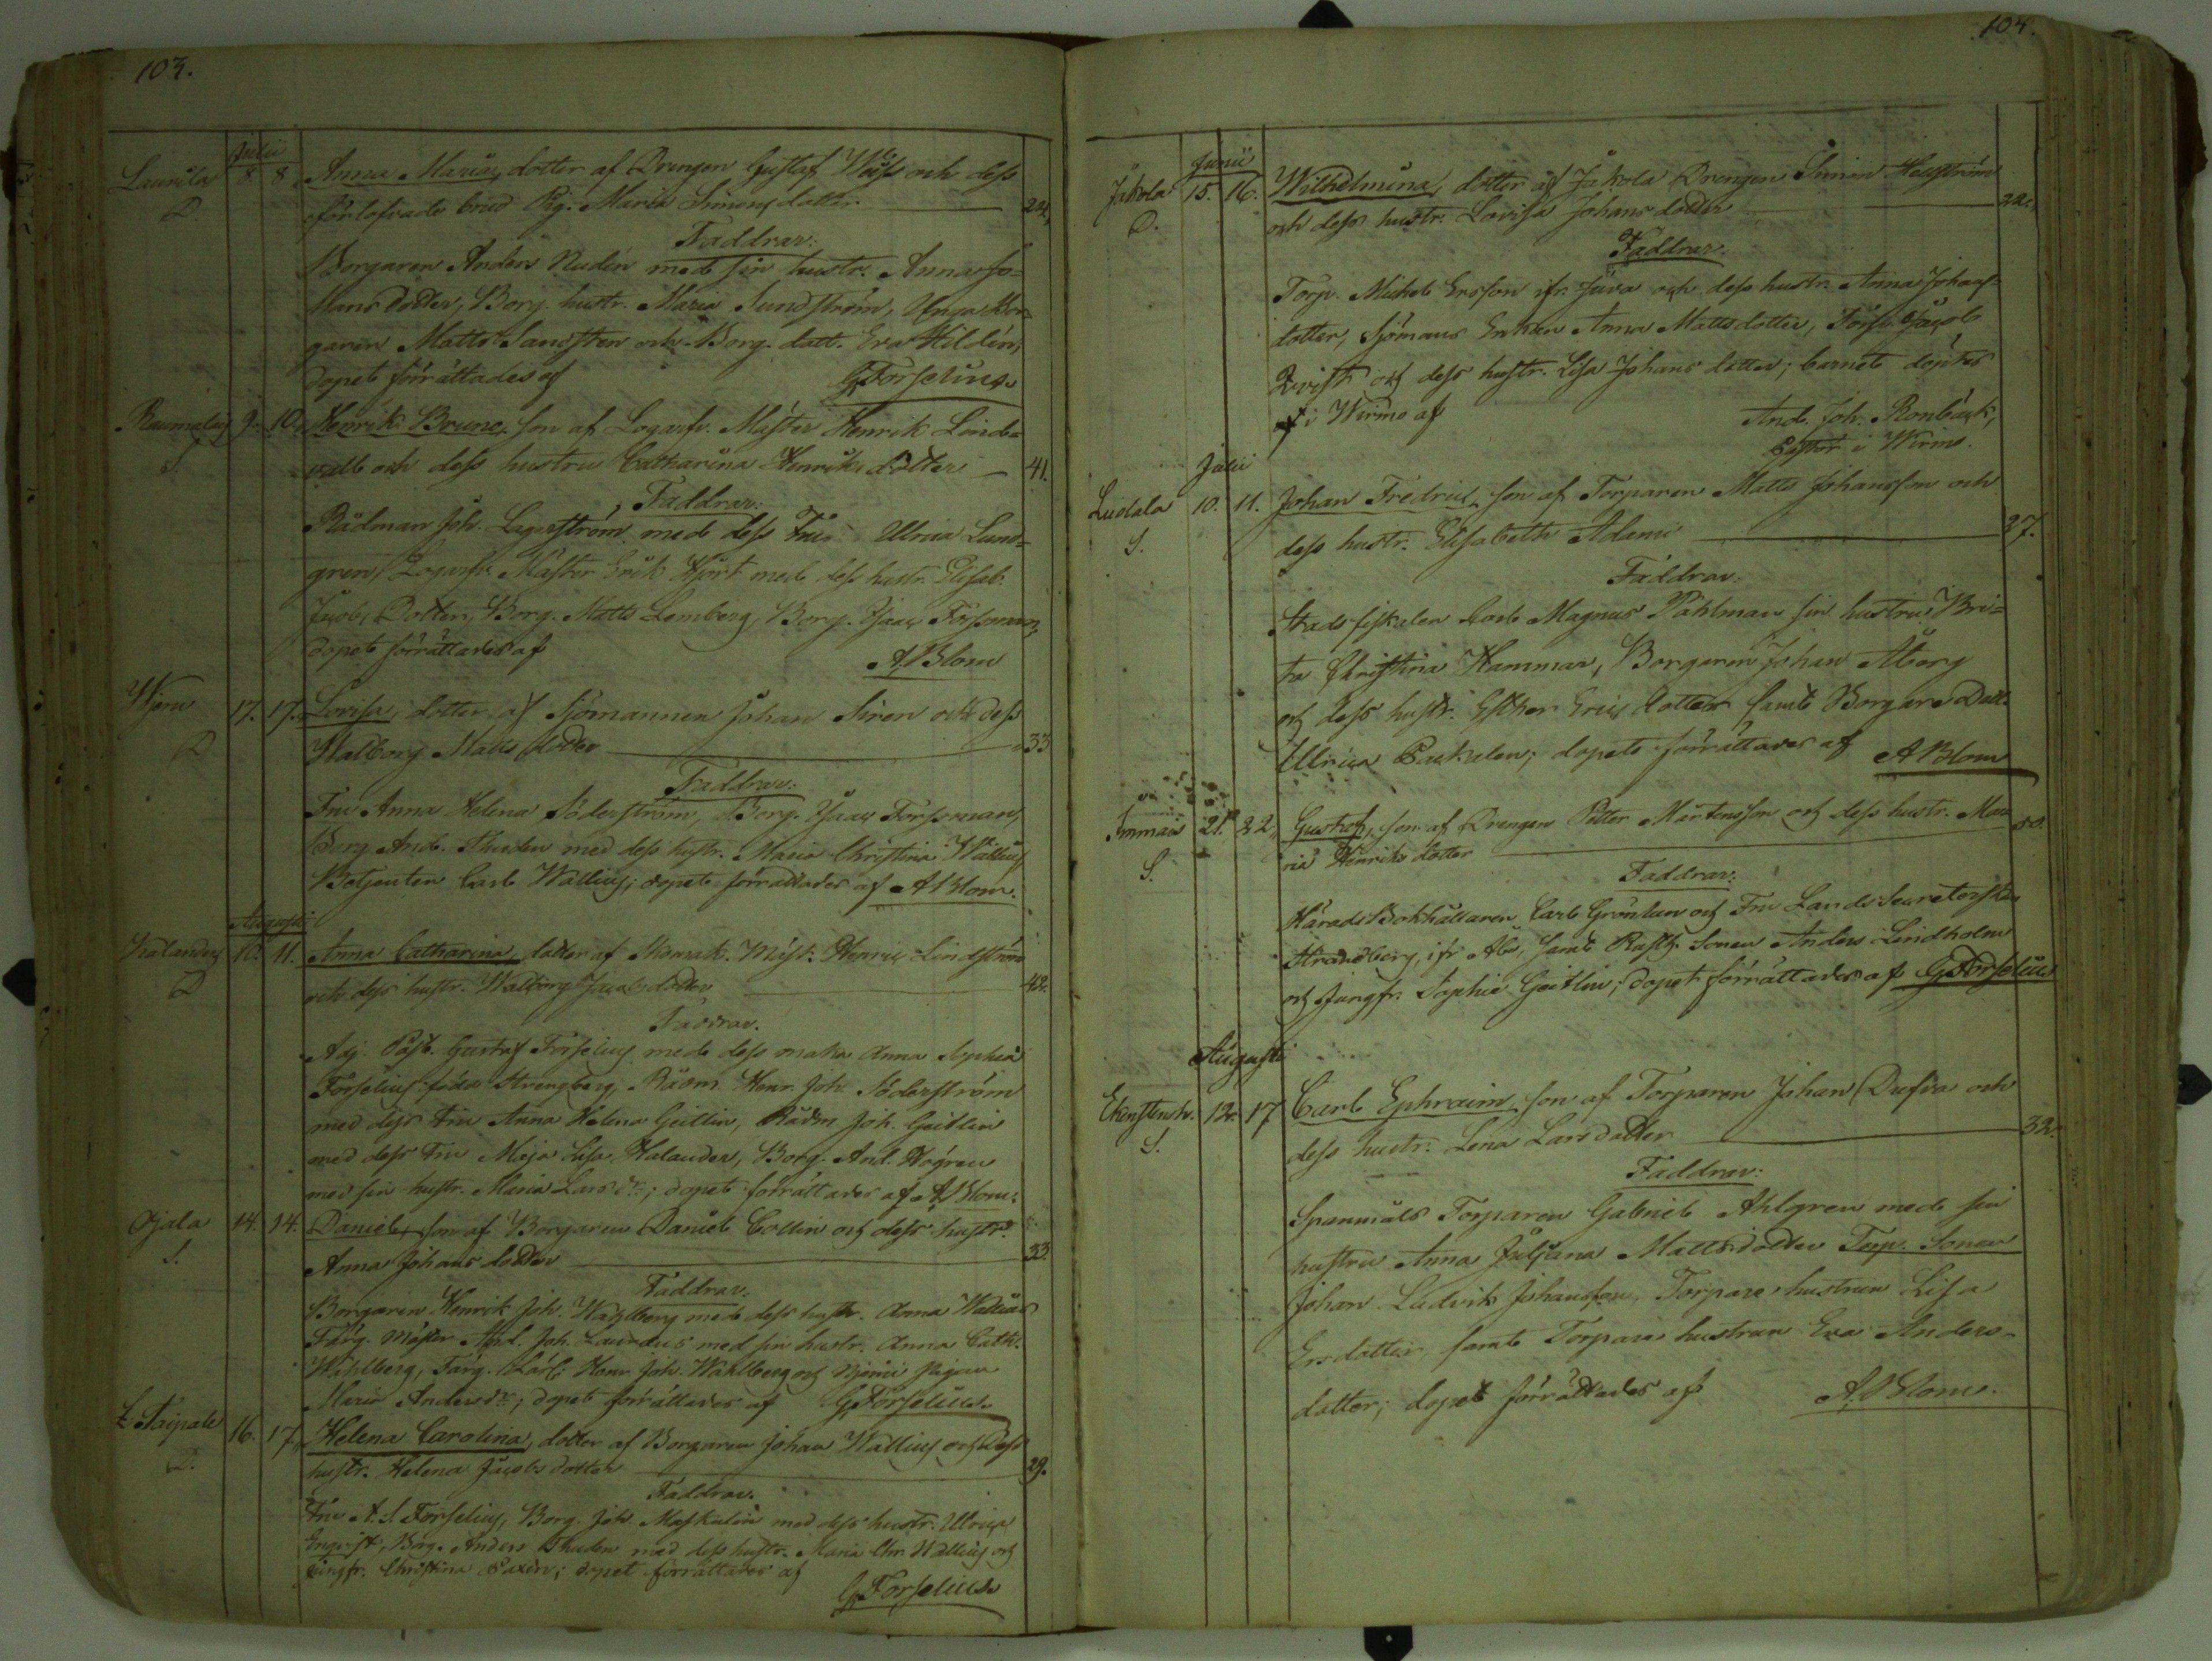 103.
Julii
Laurila 8. 8. Anna Maria, dotter af Drengen Gustaf Weiss och dess
D. förlofvade brud Pig. Maria Simonsdotter 24.
Faddrar:
Borgaren Anders Nudin med sin hustr. Anna Jo-
hansdotter, Borg. hustr. Maria Sundström, Unga Bor-
garen Matts Sandsten och Borg. dott. Eva Hildén;
dopet förrättades af G. Forselius
9. 10. Henrik Bruno, son af Logarfv. Mäster Henrik Lind-
S. vall och dess hustru Catharina Henriksdotter 41.
Faddrar:
Rådman Joh. Lagerström med dess Fru Ulrica Lund-
gren, Logarfv. Mäster Erik Hjort med dess hustr. Elisab.
Jacobs Dotter, Borg. Matts Lemberg, Borg. Isaac Forssman,
dopet förrättades af A. Blom
17. 17. Lovisa, dotter af Sjömannen Johan Siren och dess
D Walborg Matts dotter 33
Faddrar:
Fru Anna Helena Söderström, Borg. Isaac Forssman,
Borg. And. Thuden med dess hustr. Maria Christina Wallius
Carl Wallius; dopet förrättades af A Blom.
Augusti
10. 11. Anna Catharina, dotter af Skomak. Mäst. Henric Lindström
D och dess hustr. Walborg Jacobs dotter 42.
Faddrar.
Adj. Past. Gustaf Forselius med dess maka Anna Sophia
Forselius född Strengberg, Rådm. Henr. Joh. Söderström
med dess Fru Anna Helena Geitlin, Rådm. Joh. Geitlin
med dess Fru Maja Lisa Kalander, Borg. And. Högren
med sin hustr. Maria Lars dr; dopet förrättades af A. Blom.
Ojala 14. 14. Daniel, son af Borgaren Daniel Collin och dess hustr.
S. Anna Johans dotter 33.
Faddrar.
Borgaren Henrik Joh. Wahlberg med dess hustr. Anna Wallius
Färg. Mäster And. Joh. Laurdus med sin hustr. Anna Cath.
Wahlberg, Färg. Henr. Joh. Wahlberg och pigan
Maria Anders dr; dopet förrättades af G. Forselius.
Taipale 16. 17. Helena Carolina, dotter af Borgaren Johan Wallius och Dess
D. hustr. Helena Jacobs dotter 29.
Faddrar.
Fru A. S. Forselius, Borg. Joh. Maskulin med dess hustr. Ulrica
Engvist, Borg. Anders Thuden med dess hustr. Maria Chr. Wallius och
jungfr. Christina Saxén; dopet förrättades af
G. Forselius
104.
Junii
Jakola 15. 16. Wilhelmina, dotter af Jakola Drengen Simon Hellström
D. och dess hustr. Lovisa Johans dotter 22.
Faddrar.
Torp. Michel Ersson ifr. Jura och dess hustr. Anna Johans-
dotter, Sjömans Enkan Anna Mattsdotter, Jacob
Qvist och dess hustr. Lisa Johans dotter; barnet döptes
i Wirmo af And. Joh. Rönbäck,
i Wirmo.
Julii
10. 11. Johan Fredric, son af Torparen Matts Johansson och
S. dess hustr. Elisabeth Adami 27.
Faddrar.
Stads fiskalen Carl Magnus Påhlman sin hustru Bri-
ta Christina Hammar, Borgaren Johan Åberg
och dess hustr. Esther Erics dotter samt Borgare Dott.
Ulrica Paskalen; dopet förrättades af A Blom
21. 22. Gustaf, son af Drengen Petter Mårtensson och dess hustr. Ma-
S. ria Henriks dotter
Faddrar:
Härads Bokhållaren Carl Grönlun och Fru Lands Secreterskan
Strandberg, ifr Åbo, samt Rusth. Sonen Anders Lindholm
och Jungfr. Sophia Geitlin; dopet förrättades af G. Forselius
Augusti
12. 17 Carl Ephraim, son af Torparen Johan Dufva och
S. dess hustr. Lena Larsdotter 32.
Faddrar:
Spanmåls Torparen Gabriel Ahlgren med sin
hustru Anna Juliana Mattsdotter Torp. Sonen
Johan Ludvik Johansson, Torpare hustrun Lisa
Ersdotter samt Torpare hustrun Eva Anders-
dotter; dopet förrättades af A. Blom.